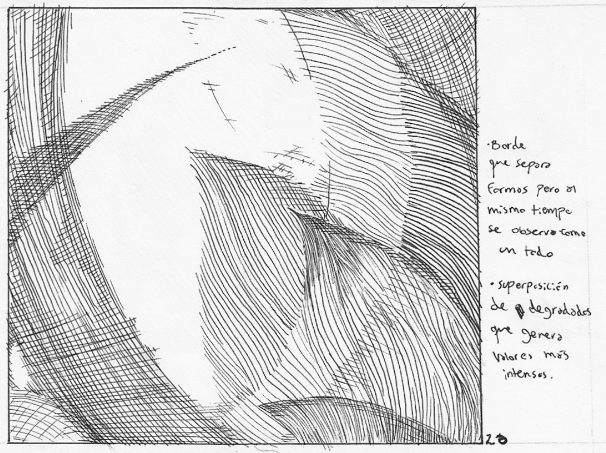 ·Borde
que separa
Formas pero al
mismo tiempo
se observa como
un todo
·superposición
de degradados
que genera
valores más
intensos.
28